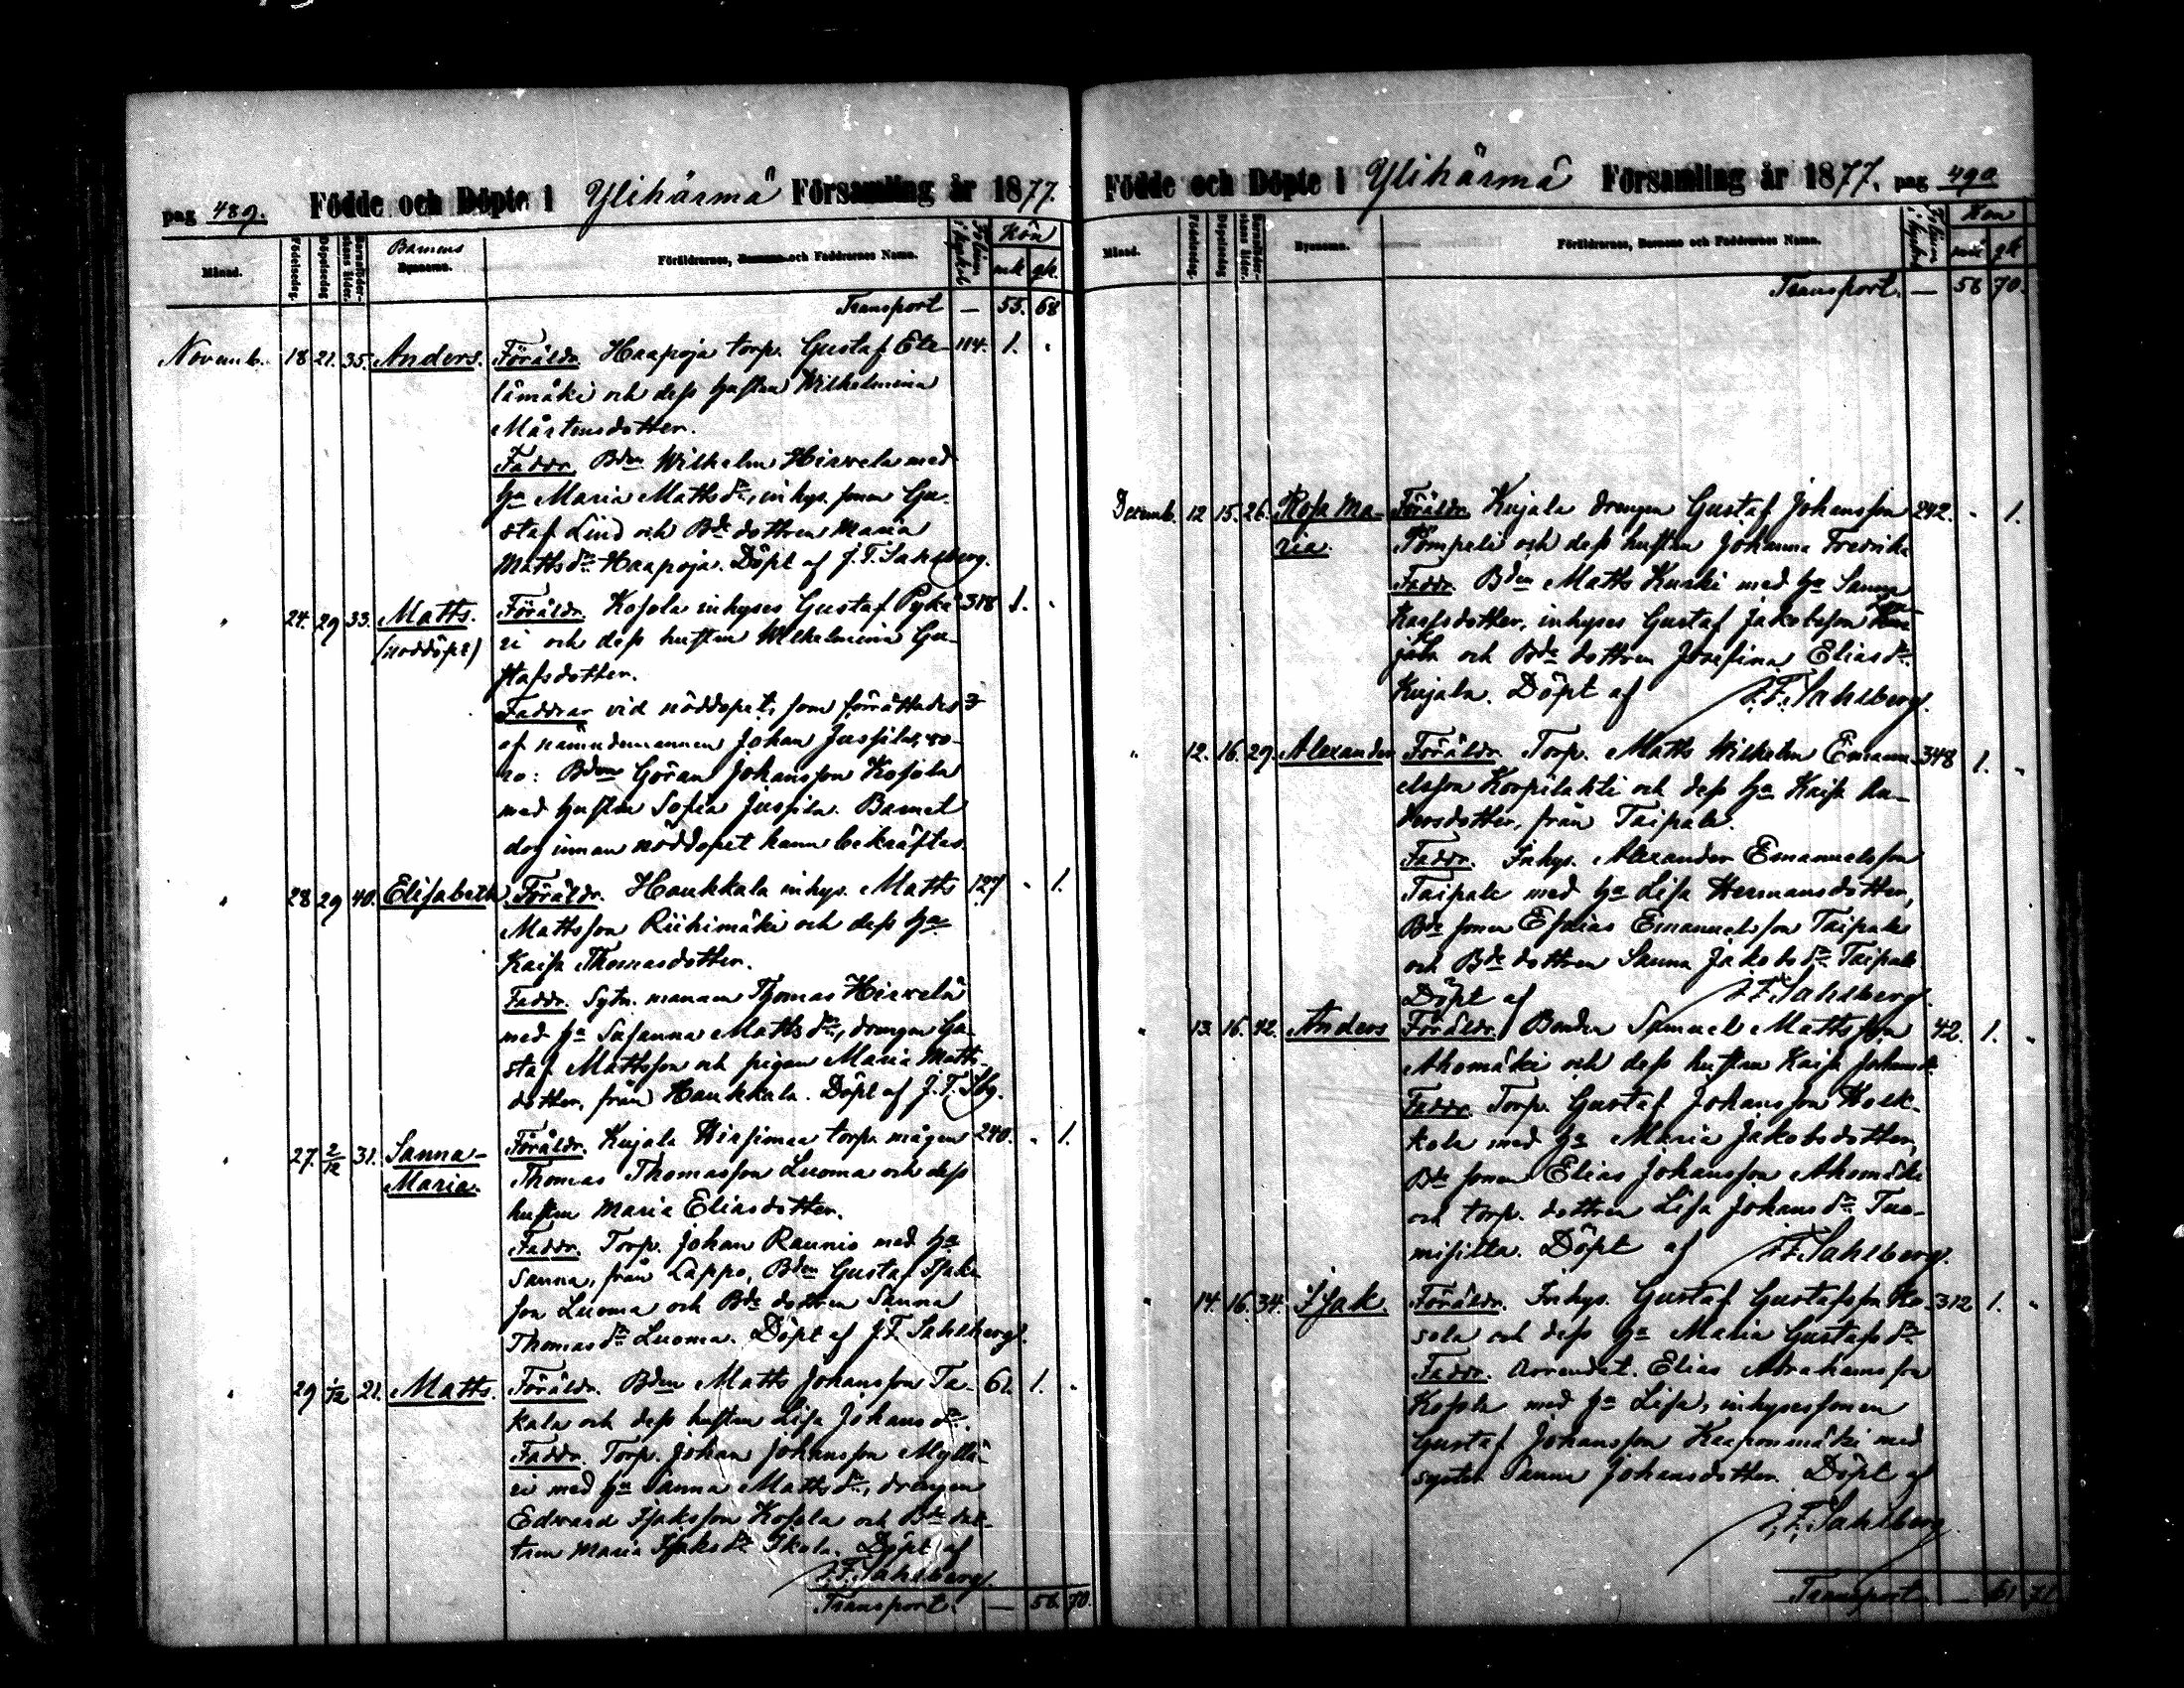 pag 489. Födde och Döpte i Ylihärmä Församling år 1877.
Månad. Födelsedag. Döpelsedag Barnaföderskans ålder. Barnens Bynamn. Föräldrarnes, Barnens och Faddrarnes Namn. Kön
mk. qk.
Transport — 55. 68
Novemb. 18 21. 35. Anders. Föräldr. Haapoja torp. Gustaf Ete- 114. 1. "
lämäki och dess hustru Wilhelmina
Mårtensdotter.
Faddr. Bdn Wilhelm Hirvelä med
ha Maria Matts dr, inhys. sonen Gu-
staf Lind och Bde dottren Maria
Matts dr Haapoja. Döpt af J. F. Sahlberg.
" 24. 29 33. Matts. Föräldr. Kosola inhyses Gustaf Pykä- 318 1. "
(nöddöpt) ri och dess hustru Wilhelmina Gu-
stafsdotter.
Faddrar vid nöddopet, som förrättades
af nämndemannen Johan Jussila, vo-
ro: Bdn Göran Johansson Kosola
med hustru Sofia Jussila. Barnet
dog innan nöddopet hann bekräftas.
" 28 29 40. Elisabeth Föräldr. Haukkala inhys. Matts 127 " 1.
Mattsson Riihimäki och dess ha
Kaisa Thomasdotter.
Faddr. Sytn. mannen Thomas Hirvelä
med ha Susanna Matts dr, drengen Gu-
staf Mattsson och pigan Maria Matts-
dotter, från Haukkala. Döpt af J. F. Sbg.
" 27. 2/12 31. Sanna- Föräldr. Kujala Hirsimaa torp. mågen 240. " 1.
Maria. Thomas Thomasson Luoma och dess
hustru Maria Eliasdotter.
Faddr. Torp. Johan Raunio med ha
Sanna, från Lappo, Bdn Gustaf Isaks-
son Luoma och Bde dottren Sanna
Thomas dr Luoma. Döpt af J. F. Sahlberg.
" 29 1/12 21. Matts. Föräldr. Bdn Matts Johansson Ta- 61. 1. "
kala och dess hustru Lisa Johans dr.
Faddr. Torp. Johan Johansson Myllä-
ri med ha Sanna Matts dr, drengen
Edward Isaksson Kosola och Bde dot-
tren Maria Isaks dr Ikola. Döpt af
J. F. Sahlberg.
Transport. — 58. 70.
Födde och Döpte i Ylihärmä Församling år 1877. pag 490
Månad. Födelsedag. Döpelsedag Barnaföderskans ålder. Bynamn. Föräldrarnes, Barnens och Faddrarnes Namn. Kön
mk qk
Transport. — 58 70.
Decemb. 12 15. 26. Rosa Ma- Föräldr. Kujala drengen Gustaf Johansson 242. " 1.
ria. Pömpeli och dess hustru Johanna Fredrika
Faddr. Bdn Matts Kuoki med ha Sanna
dotter, inhyses Gustaf Jakobsson Ku-
jala och Bde dottren Josefina Elias dr
Kujala. Döpt af J. F. Sahlberg.
" 12. 16. 29. Alexander Föräldr. Torp. Matts Wilhelm Emanu- 348 1. "
elsson Korpilahti och dess ha Kaisa An-
dersdotter, från Taipale.
Faddr. Inhys. Alexander Emanuelsson
Taipale med ha Lisa Hermansdotter,
Bde sonen Esaias Emanuelsson Taipale
och Bde dottren Sanna Jakobs dr Taipale
Döpt af J. F. Sahlberg.
" 13. 16. 42. Anders Föräldr. Bonden Samuel Mattsson 42. 1. "
Ahomäki och dess hustru Kaisa Johans dr
Faddr. Torp. Gustaf Johansson Kolk-
kola med ha Maria Jakobsdotter,
Bde sonen Elias Johansson Ahomäki
och torp. dottren Lisa Johans dr Tuo-
misilta. Döpt af J. F. Sahlberg.
" 14. 16. 34. Isak. Föräldr. Inhys. Gustaf Gustafsson Ko- 312 1. "
sola och dess ha Maria Gustafs dr
Faddr. Arrendat. Elias Abrahamsson
Kosola med ha Lisa, inhysessonen
Gustaf Johansson Kaaponmäki med
syster Sanna Johansdotter. Döpt af
J. F. Sahlberg
Transport — 61 71